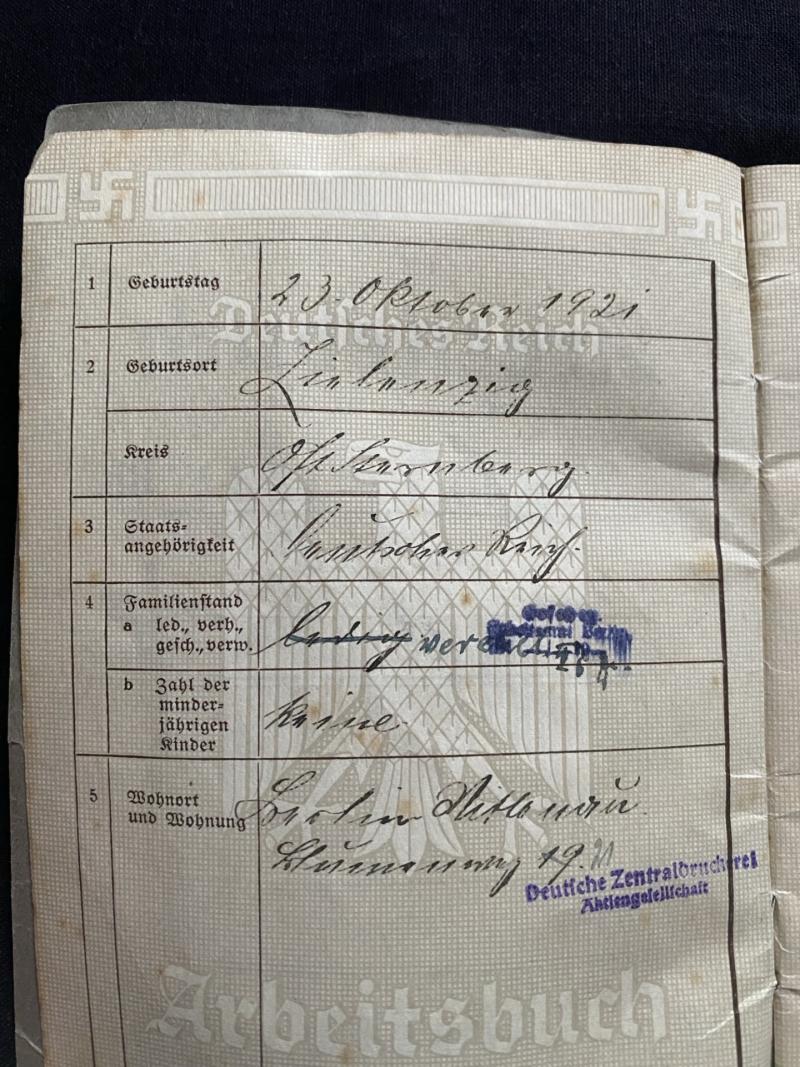 1 Geburtstag 23. Oktober 1921
Deutsches Reich
2 Geburtsort Zielenzig
Kreis Ost Sternberg.
3 Staats=
angehörigkeit Deutsches Reich.
4 Familienstand
a led., verh.,
gesch., verw. ledig
b Zahl der
minder=
jährigen
Kinder keine
5 Wohnort
und Wohnung Berlin Wittenau.
Blumenweg 19.
Deutsche Zentraldruckerei
Aktiengesellschaft
Arbeitsbuch